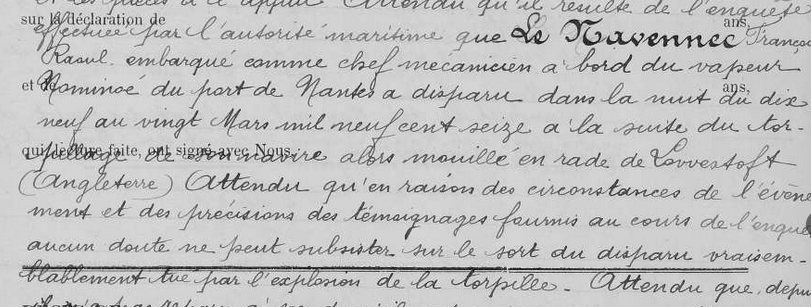 et les pièces à l'appui Attendu qu'il résulte de l'enquête
sur la déclaration de ans,
effectuée par l'autorité maritime que Le Navennec François
Raoul embarqué comme chef mécanicien à bord du vapeur
et de ans,
Nominoé du port de Nantes a disparu dans la nuit du dix
neuf au vingt Mars mil neuf cent seize à la suite du tor-
qui, lecture faite, ont signé avec Nous,
pillage de son navire alors mouillé en rade de Lovvestoft
(Angleterre) Attendu qu'en raison des circonstances de l'évène
ment et des précisions des témoignages fournis au cours de l'enquê
aucun doute ne peut subsister sur le sort du disparu vraisem-
blablement tué par l'explosion de la torpille - Attendu que, depu